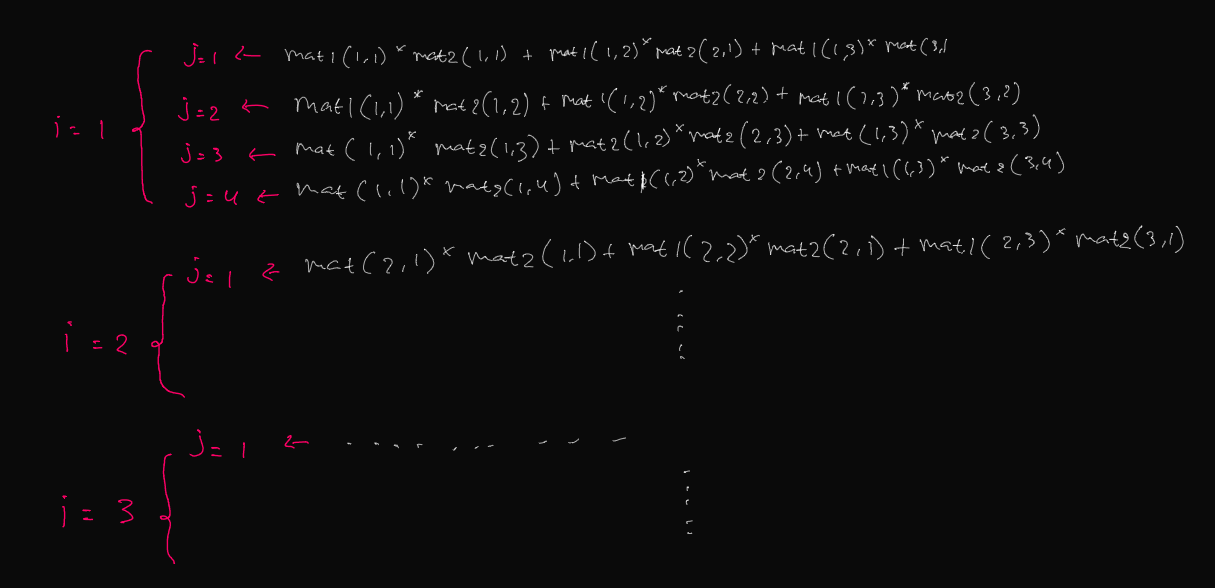 j=1 ← mat1(1,1)*mat2(1,1) + mat1(1,2)*mat2(2,1) + mat1(1,3)*mat(3,1
i=1
j=2 ← mat1(1,1)*mat2(1,2) + mat1(1,2)*mat2(2,2) + mat1(1,3)*mat2(3,2)
j=3 ← mat(1,1)* mat2(1,3) + mat2(1,2)*mat2(2,3) + mat(1,3)*mat2(3,3)
j=4 ← mat(1,1)*mat2(1,4) + mat1(1,2)*mat2(2,4) + mat1(1,3)*mat2(3,4)
j=1 ← mat(2,1)*mat2(1,1) + mat1(2,2)*mat2(2,1) + mat1(2,3)*mat2(3,1)
i=2
j=1 ←
i=3